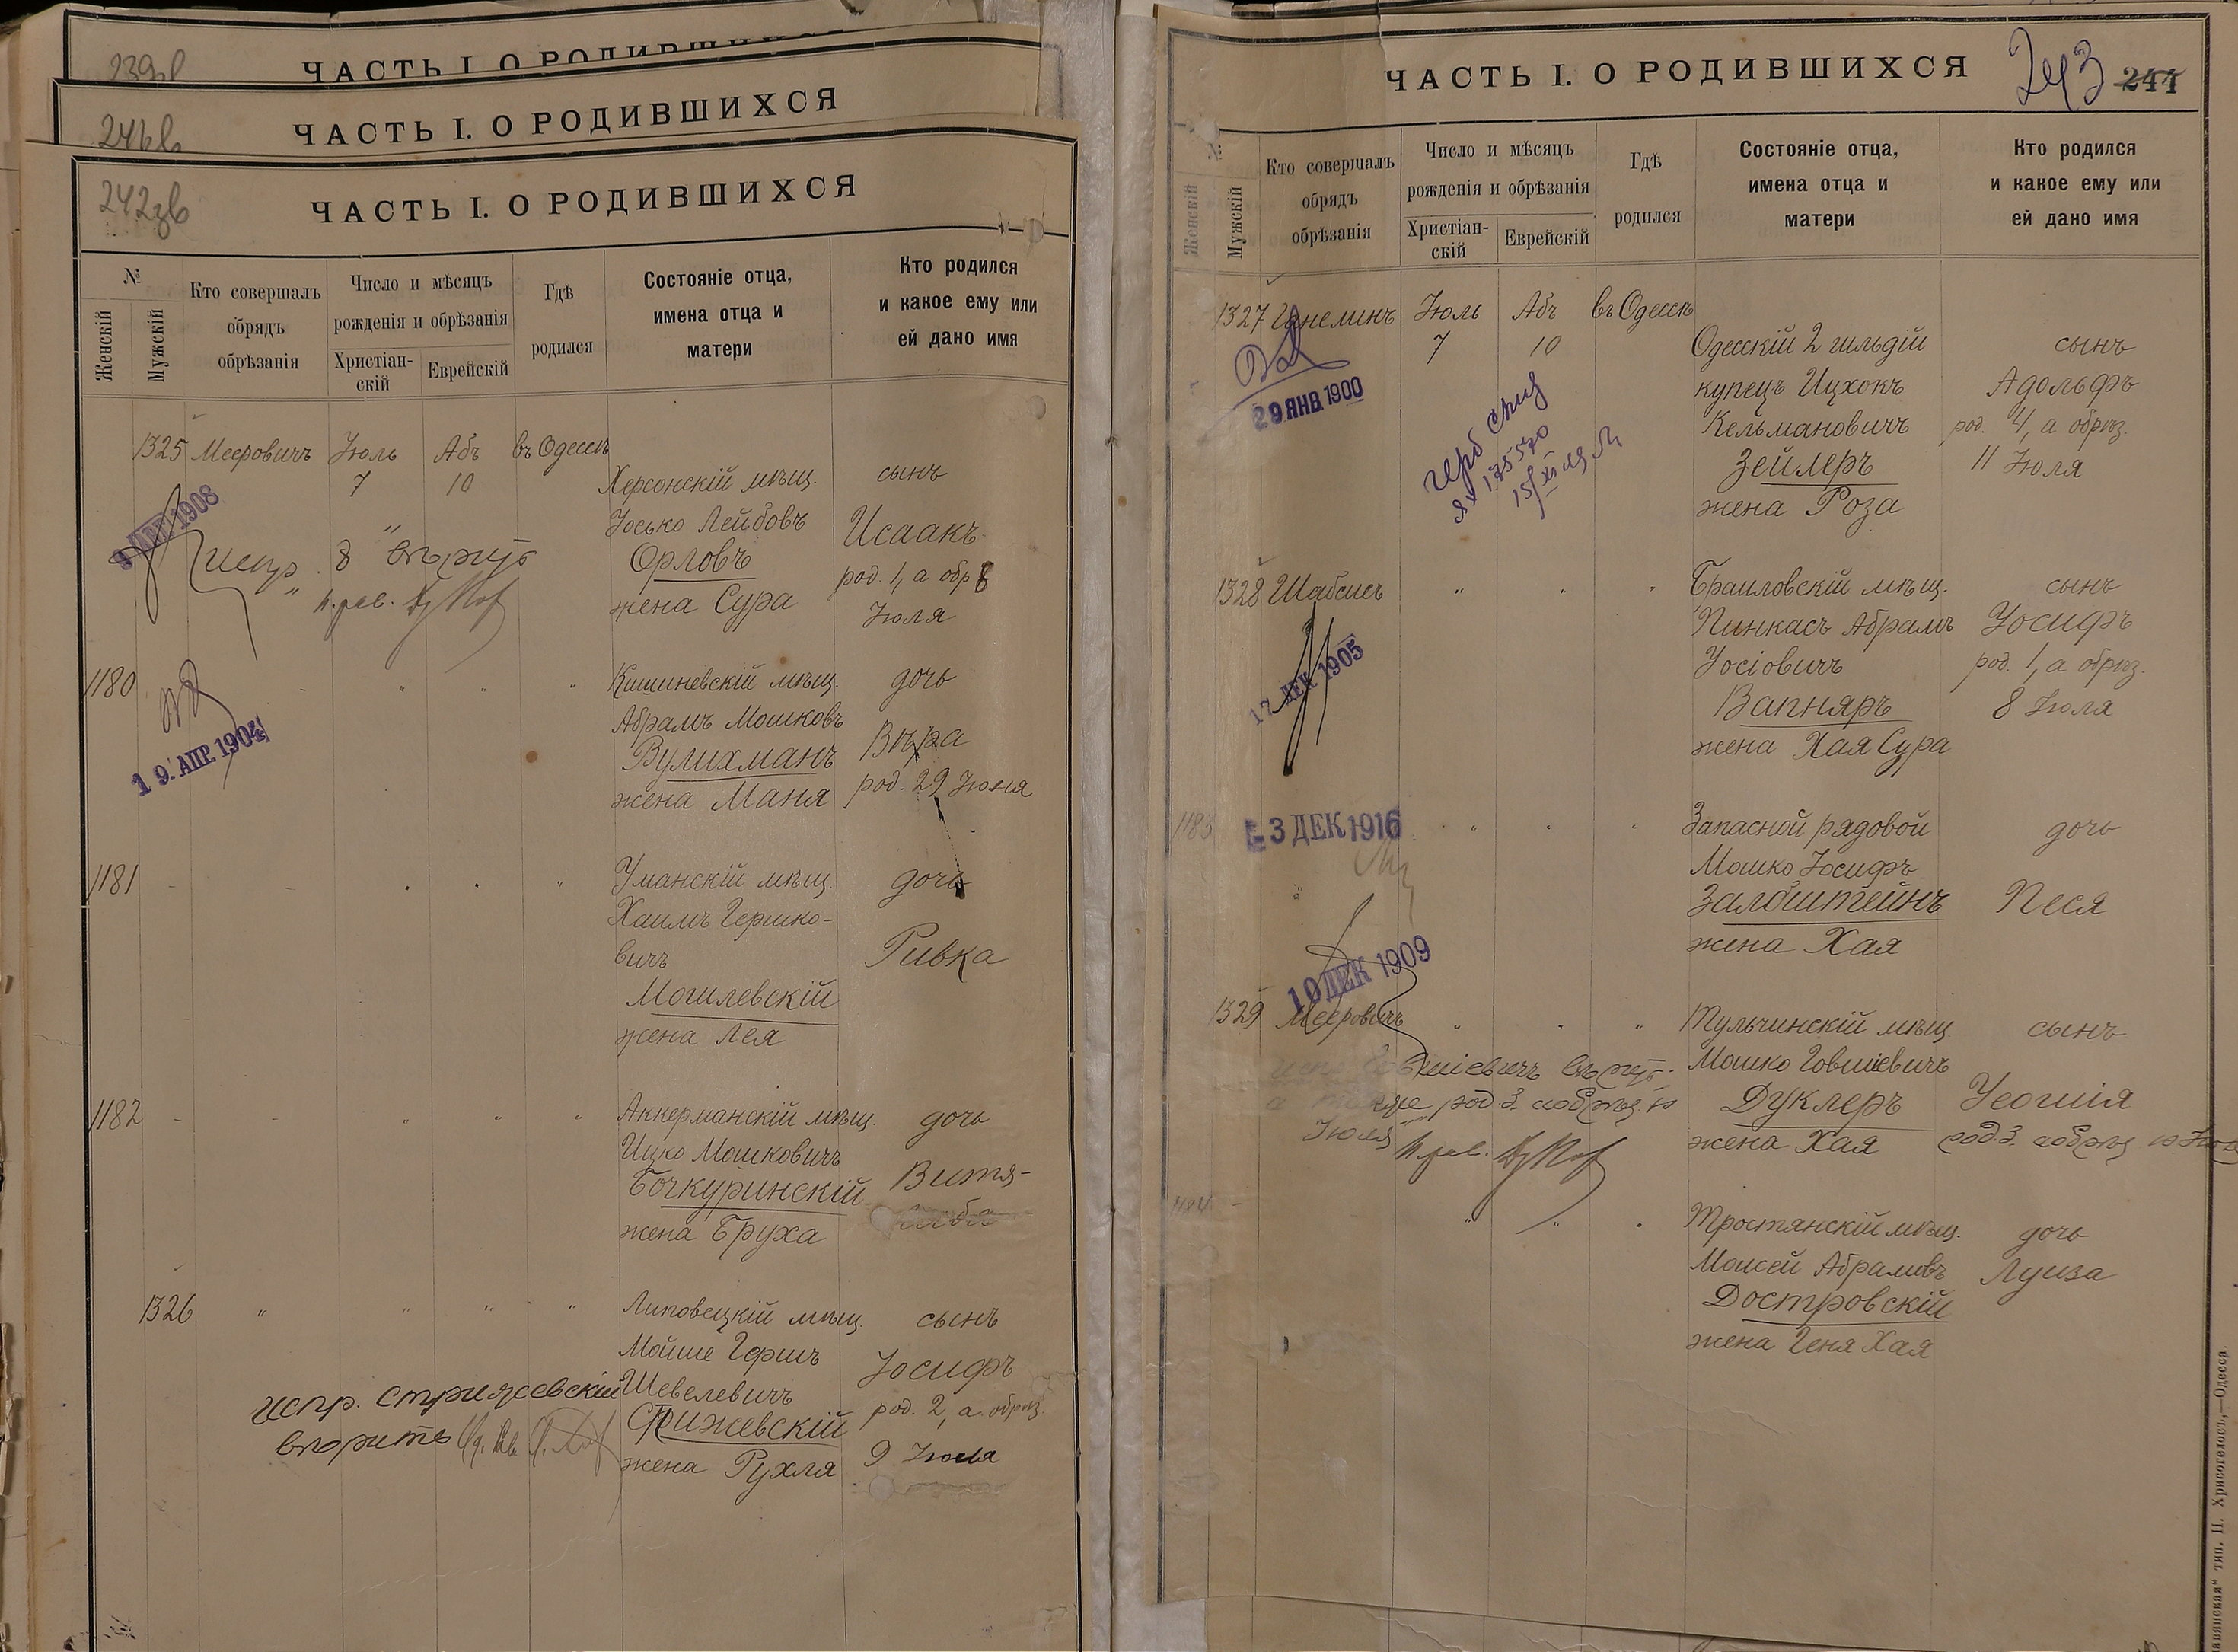 ЧАСТЬ I. О РОДИВШИХСЯ
ЧАСТЬ I. О РОДИВШИХСЯ
ЧАСТЬ I. О РОДИВШИХСЯ
№
Женскій
Мужскій
Кто совершалъ
обрядъ
обрѣзанія
Число и мѣсяцъ
рожденія и обрѣзанія
Христіан-
скій
Еврейскій
Гдѣ
родился
Состояніе отца,
имена отца и
матери
Кто родился
и какое ему или
ей дано имя
1325 Мееровичъ Іюль Абъ въ Одессѣ
7 10
Херсонскій мѣщ. сынъ
Іосько Лейбовъ Исаакъ
Орловъ род. 1, а обр 8
жена Сура Іюля
1908
испр. 8 " вѣрить
1180 " " " Кишиневскій мѣщ. дочь
Абрамъ Мошковъ
Вулихманъ Вѣра
жена Маня род. 29 Іюня
19. АПР. 1904
1181 Уманскій мѣщ. дочь
Хаимъ Гершко-
вичъ Ривка
Могилевскій
жена Лея
1182 " " " Аккерманскій мѣщ. дочь
Ицко Мошковичъ
Бочкуринскій Витя-
жена Бруха
1326 " " " " Липовецкій мѣщ. сынъ
Мойше Гершъ Іосифъ
Шевелевичъ род. 2, а обрѣз.
Стрижевскій 9 Іюля
жена Рухля
испр. Стрижевскій
вѣрить
ЧАСТЬ I. О РОДИВШИХСЯ 243 244
Женскій
Мужскій
Кто совершалъ
обрядъ
обрѣзанія
Число и мѣсяцъ
рожденія и обрѣзанія
Христіан-
скій
Еврейскій
Гдѣ
родился
Состояніе отца,
имена отца и
матери
Кто родился
и какое ему или
ей дано имя
1327 Ганелинъ Іюль Абъ въ Одессѣ
7 10
Одесскій 2 гильдій сынъ
купецъ Ицхокъ Адольфъ
Кельмановичъ род. 4, а обрѣз.
Зейлеръ 11 Іюля
жена Роза
29 ЯНВ. 1900
1328 Шабсисъ " " " Браиловскій мѣщ. сынъ
Пинкасъ Абрамъ Іосифъ
Іосіовичъ род. 1, а обрѣз.
Вапняръ 8 Іюля
жена Хая Сура
17 ДЕК 1905
1183 " " " Запасной рядовой дочь
Мошко Іосифъ
Залбштейнъ Песя
жена Хая
3 ДЕК 1916
10 ДЕК 1909
1329 Мееровичъ " " " Тульчинскій мѣщ. сынъ
Мошко Говшіевичъ
Дуклеръ Іеошія
жена Хая род. 3. а обрѣз 10 Іюля
род. 3. а обрѣз 10
Іюля
1184 " " " Тростянскій мѣщ. дочь
Моисей Абрамовъ Луиза
Достровскій
жена Геня Хая
тип. П. Хрисогелосъ,—Одесса.